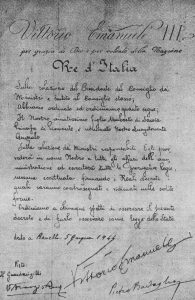 Vittorio Emanuele III
per grazia di Dio e per volontà della Nazione
Re d'Italia
Sulla relazione del Presidente del Consiglio dei
Ministri e sentito il Consiglio stesso;
Abbiamo ordinato ed ordiniamo quanto segue:
Il Nostro amatissimo figlio Umberto di Savoia
Principe di Piemonte, è nominato Nostro Luogotenente
Generale.
Sulla relazione dei Ministri responsabili Egli prov-
vederà in nome Nostro a tutti gli affari della am-
ministrazione ed eserciterà tutte le prerogative Regie,
nessuna eccettuata, firmando i Reali decreti i
quali saranno controsegnati e vidimati nelle solite
forme.
Ordiniamo a chiunque spetti di osservare il presente
decreto e di farlo osservare come legge dello Stato.
dato a Ravello 5 Giugno 1944
Vittorio Emanuele
Visto:
Il Guardasigilli
Pietro Badoglio